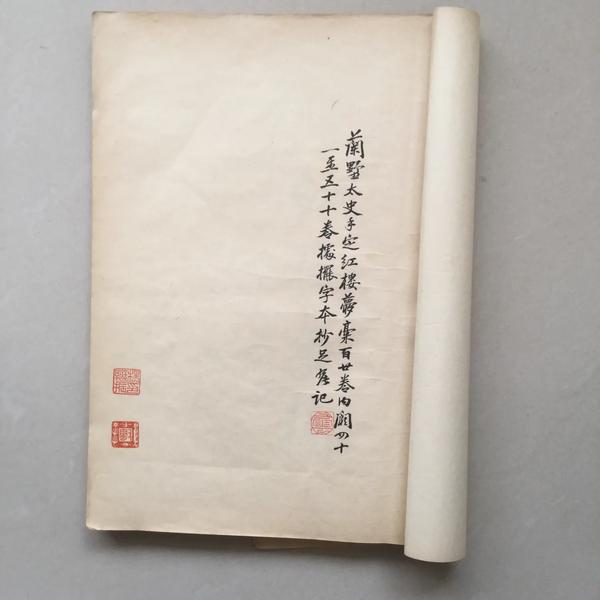 蘭墅太史手定紅樓夢稾百廿卷内闕四十
一至五十十卷據擺字本抄足記